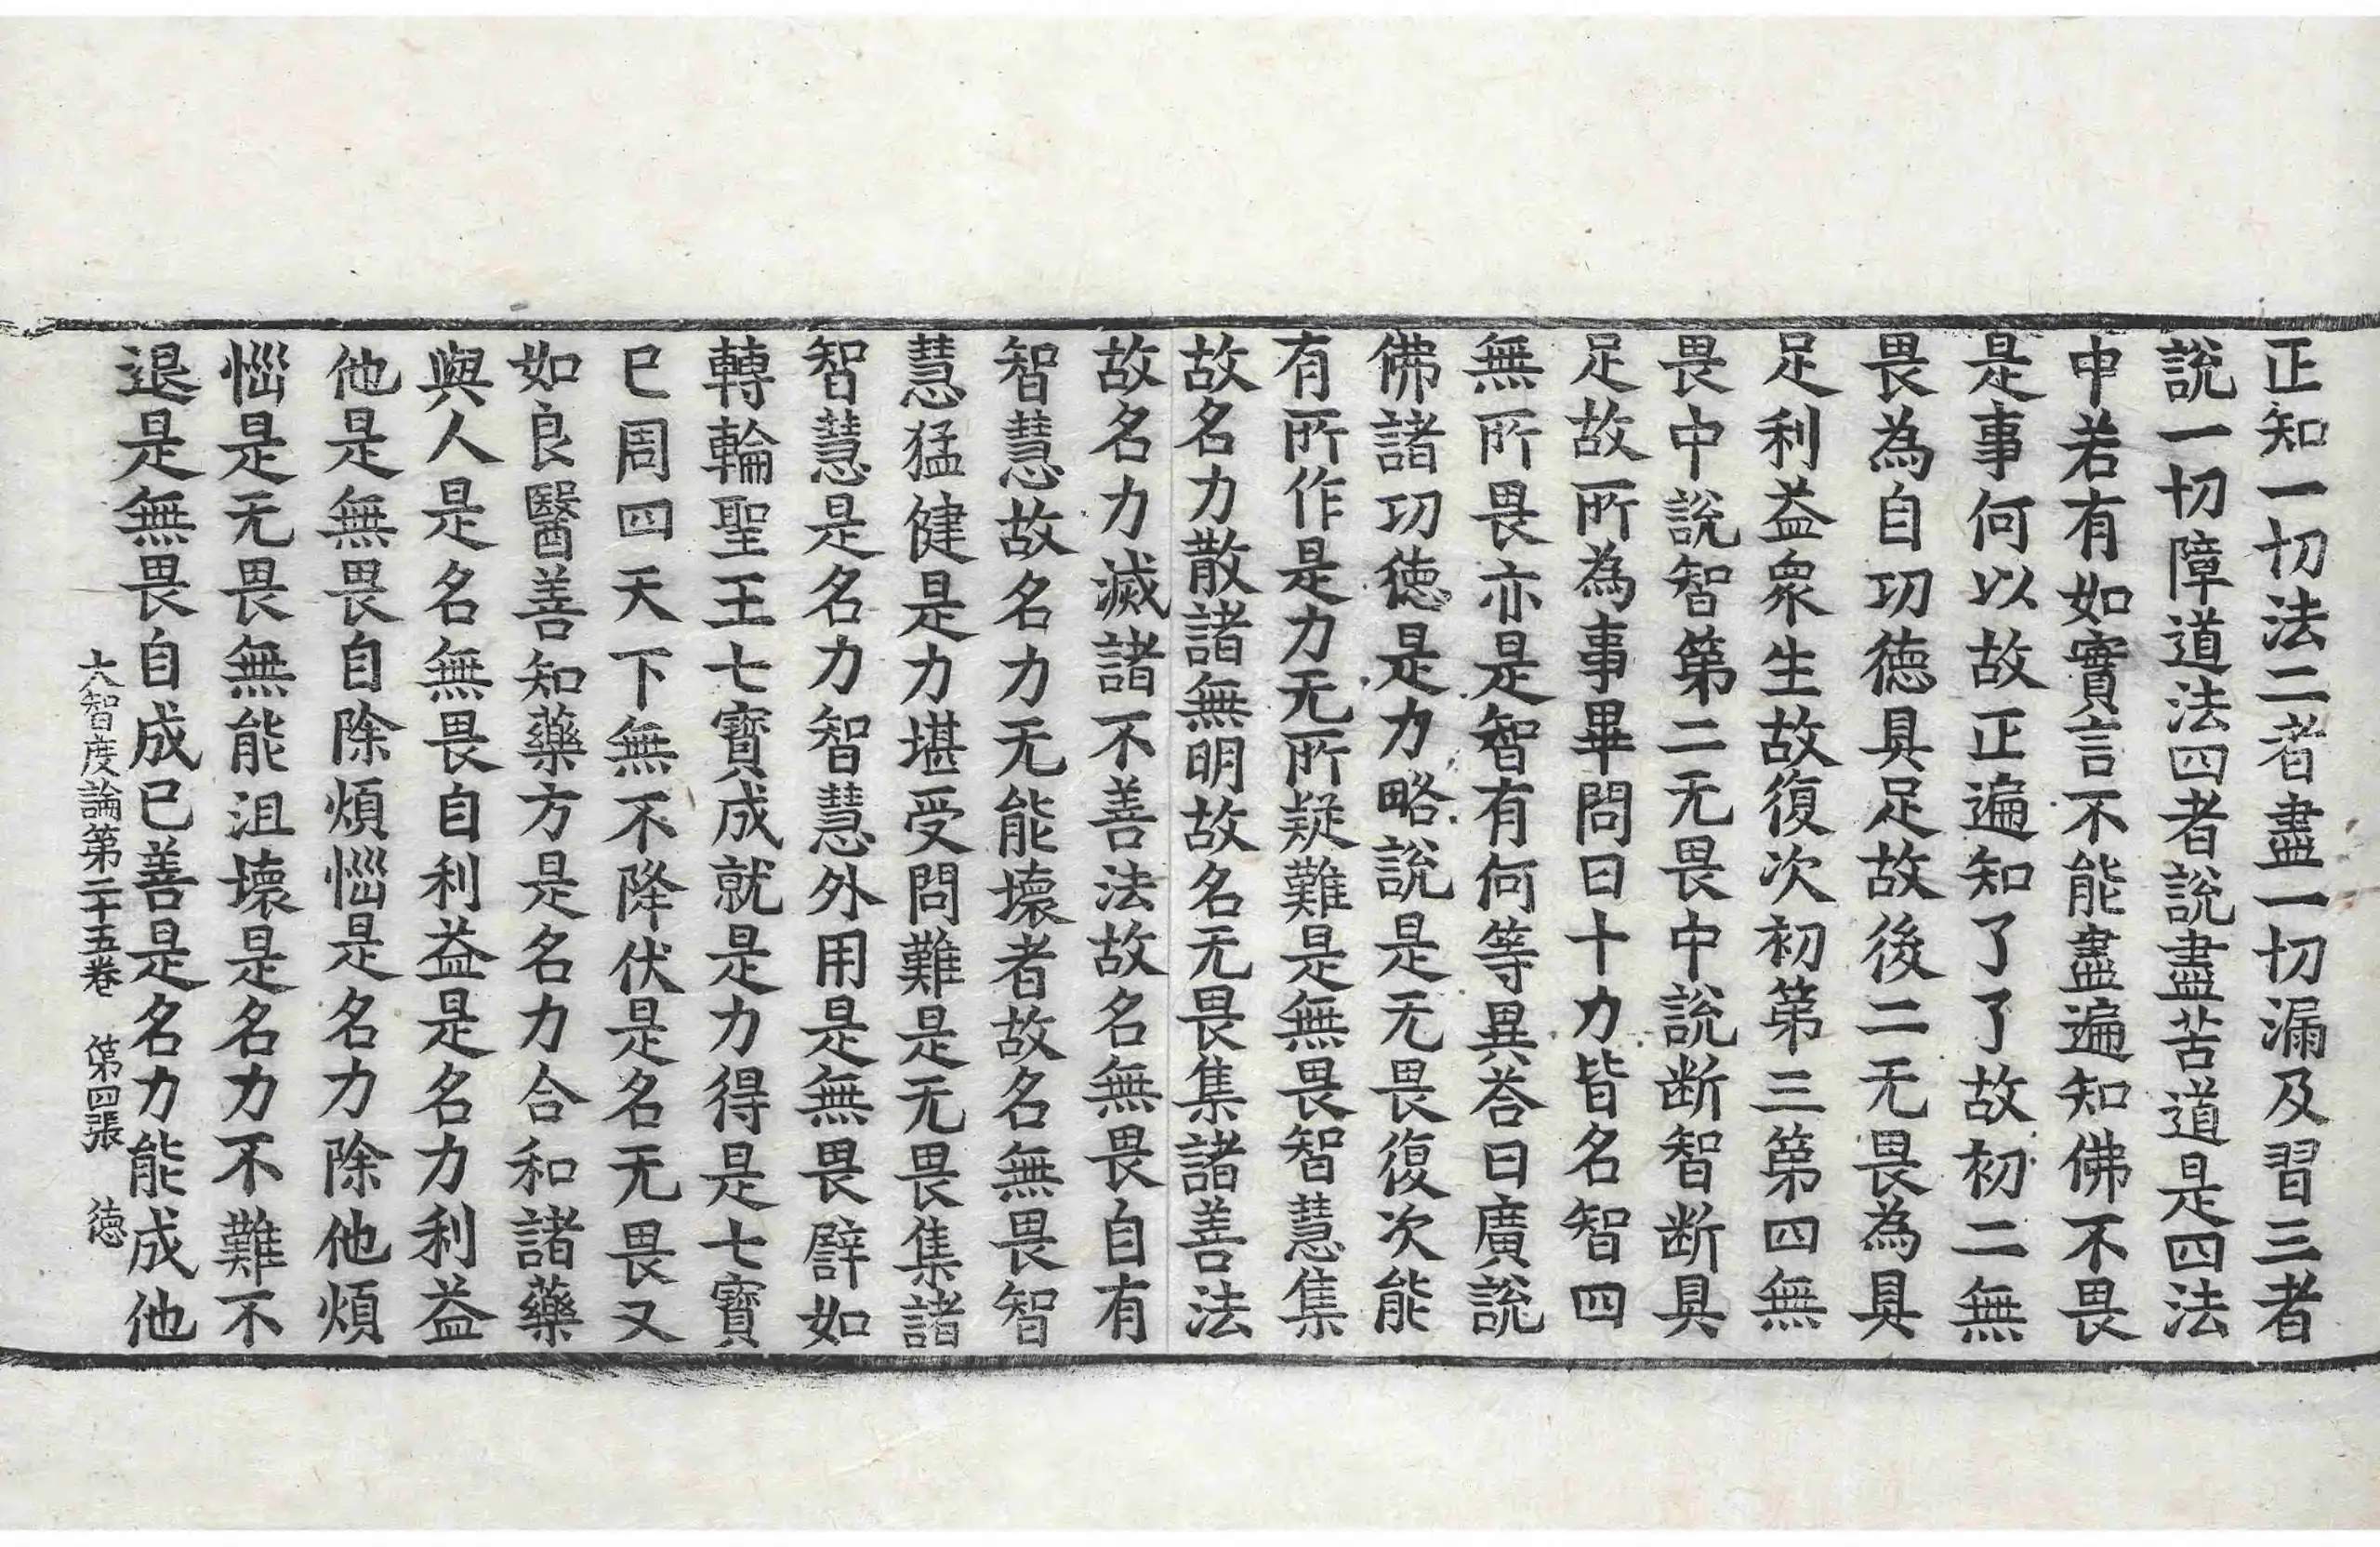 正知一切法二者盡一切漏及習三者
說一切障道法四者說盡苦道是四法
中若有如實言不能盡遍知佛不畏
是事何以故正遍知了了故初二無
畏為自功徳具足故後二无畏為具
足利益衆生故復次初第三第四無
畏中說智第二无畏中說断智断具
足故所為事畢問曰十力皆名智四
無所畏亦是智有何等異荅曰廣說
佛諸功徳是力略說是无畏復次能
有所作是力无所疑難是無畏智慧集
故名力散諸無明故名无畏集諸善法
故名力滅諸不善法故名無畏自有
智慧故名力无能壞者故名無畏智
慧猛健是力堪受問難是无畏集諸
智慧是名力智慧外用是無畏譬如
轉輪聖王七寶成就是力得是七寶
已周四天下無不降伏是名无畏又
如良醫善知藥方是名力合和諸藥
與人是名無畏自利益是名力利益
他是無畏自除煩惱是名力除他煩
惱是无畏無能沮壞是名力不難不
退是無畏自成已善是名力能成他
大智度論第二十五卷 第四張 徳